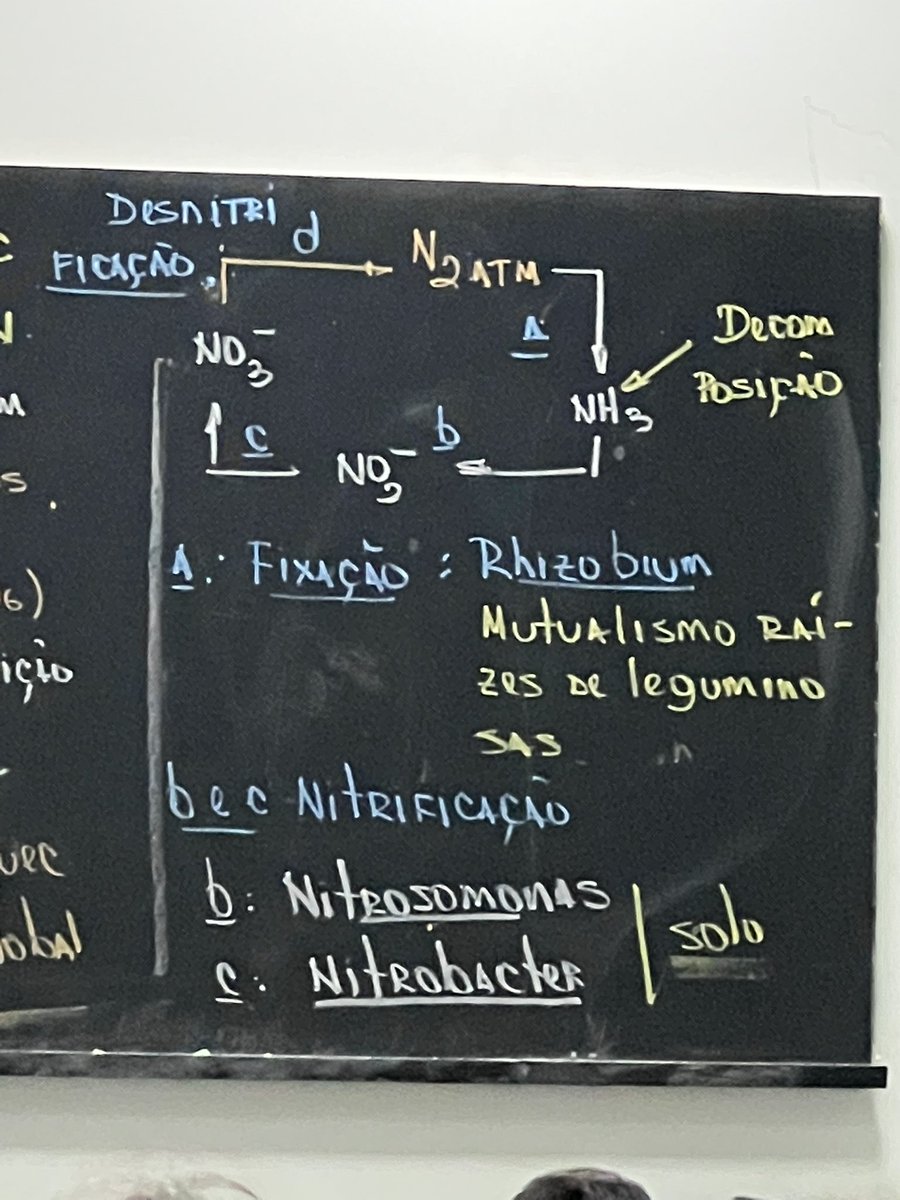 DESNITRI
FICAÇÃO
d
N2 ATM
NO3-
A
DECOM
POSIÇÃO
NH3
c
NO2-
b
A: FIXAÇÃO: Rhizobium
MUTUALISMO RAÍ-
ZES DE leguminO
SAS
b e c NITRIFICAÇÃO
b: NITROSOMONAS
c: NITROBACTER
solo
6)
ição
obal